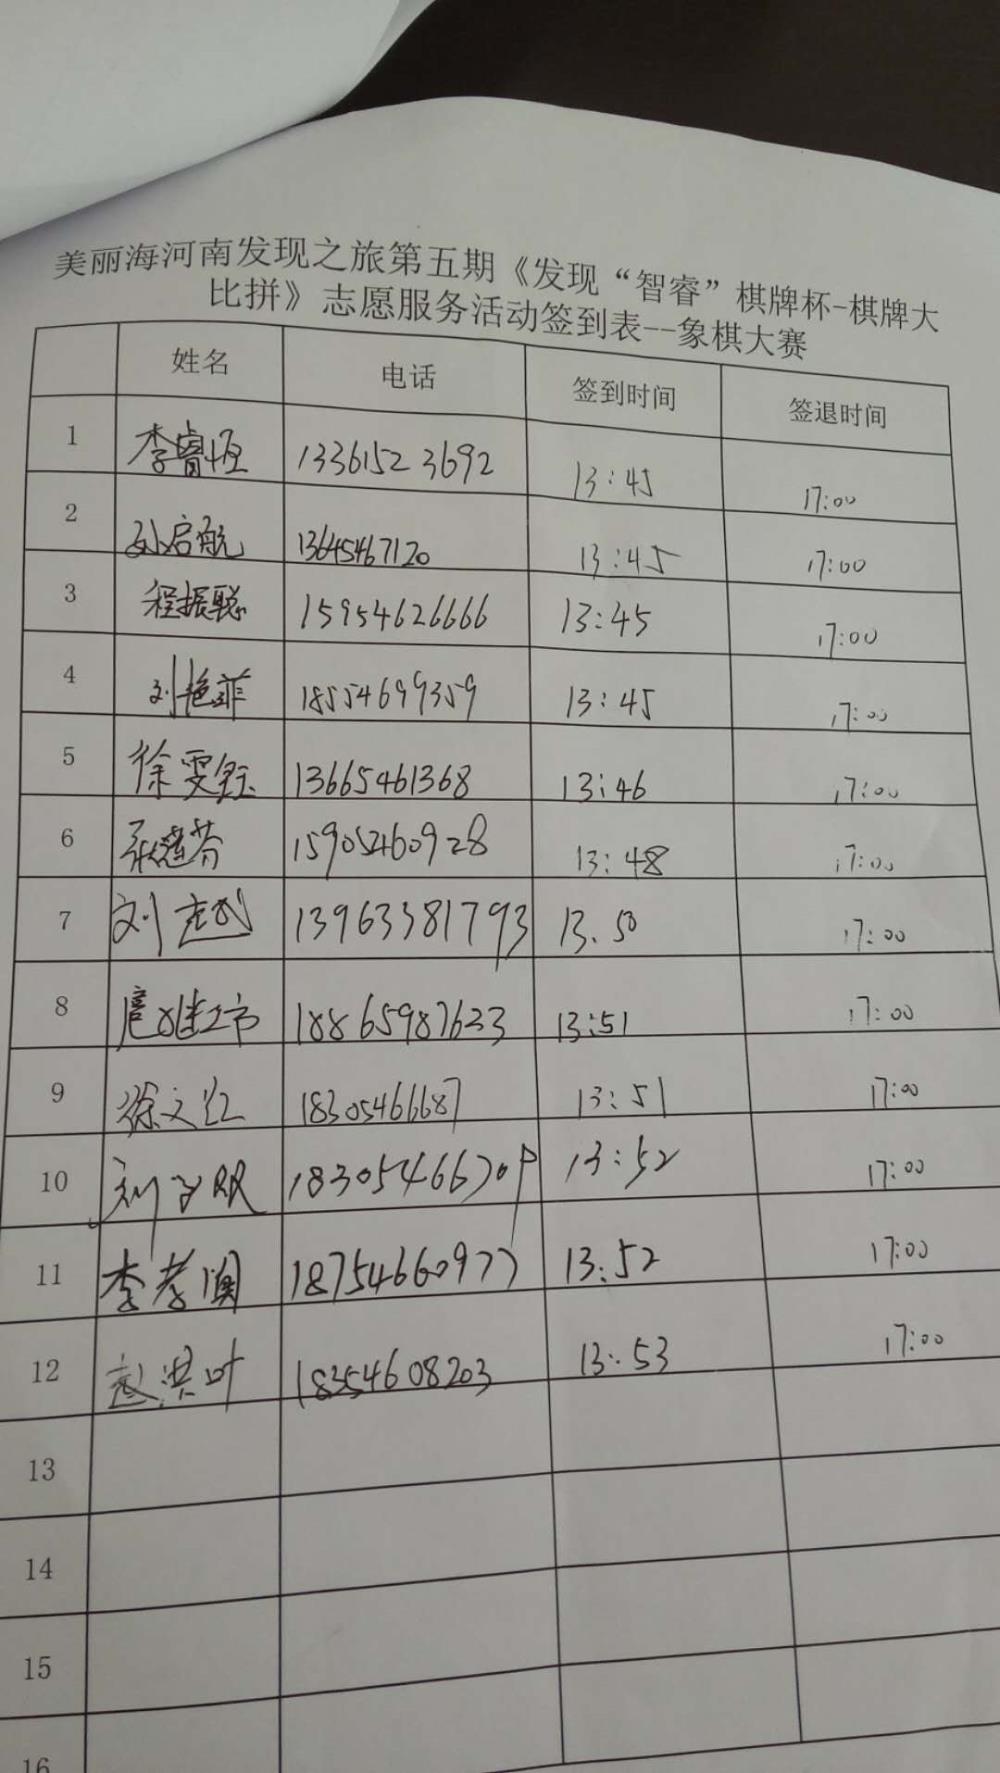 美丽海河南发现之旅第五期《发现“智睿”棋牌杯-棋牌大
比拼》志愿服务活动签到表--象棋大赛
姓名 电话 签到时间 签退时间
1 李睿恒 13361523692 13:45 17:00
2 孙启航 13645467120 13:45 17:00
3 程振聪 15954626666 13:45 17:00
4 刘艳菲 18554699359 13:45 17:00
5 徐雯钰 13665461368 13:46 17:00
6 15905460928 13:48 17:00
7 刘志武 13963381793 13.50 17:00
8 18865987633 13:51 17:00
9 徐文红 18305466687 13:51 17:00
10 1830546670 13:52 17:00
11 李孝 18754660977 13:52 17:00
12 赵洪叶 18354608203 13:53 17:00
13
14
15
16